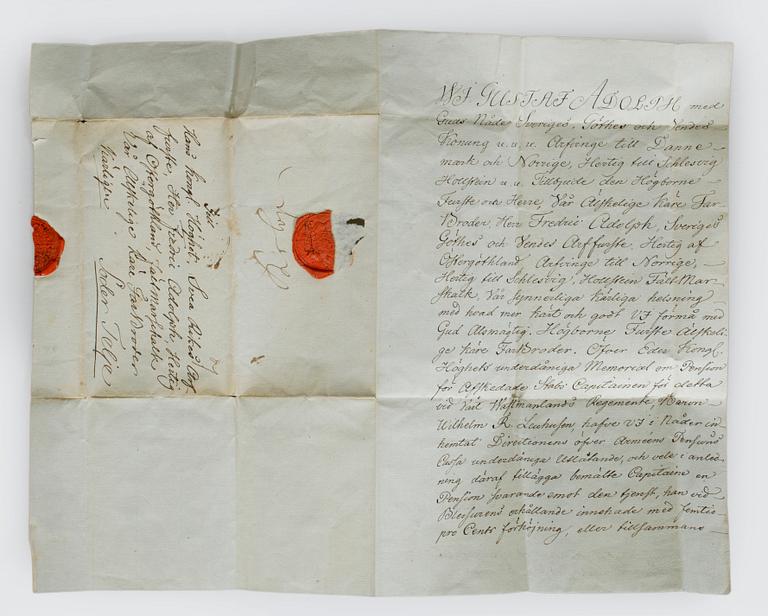 WJ GUSTAF ADOLPH med
Guds Nåde Sveriges, Göthes och Vendes
Konung u. u. u. Arfvinge till Danne-
mark och Norrige, Hertig till Schlesvig
Hollstein u. u. Tillbjude den Högborne
Furste och Herre, Vår Älskelige Käre Far
Broder, Herr Fredric Adolph, Sveriges
Göthes och Vendes Arffurste, Hertig af
Östergöthland, Arfvinge till Norrige,
Hertig till Schlesvig, Hollstein Fält-Mar
skalk, Vår synnerliga kärliga helsning
med hvad mer kärt och godt VJ förmå med
Gud Alsmägtig. Högborne Furste Älskeli-
ge käre Far Broder. Öfver Eder Kongl.
Höghets underdåniga Memorial om Pension
för Afskedade Stabs Capitainen för detta
vid Vårt Wässmanlands Regemente, Baron
Wilhelm R. Leuhusen, hafve VJ i Nåder in
hemtat Directionens öfver Arméens Pensions
Cassa underdåniga Utlåtande, och vele i anled-
ning däraf tillägga bemälte Capitaine en
Pension svarande emot den tjenst, han vid
Blessurens erhållande innehade med femtio
pro Cents förhöjning, eller tillsammans
Till
Hans Kongl. Höghet, Svea Rikes Arf
furste, Herr Fredric Adolph, Hertig
af Östergöthland, Fältmarskalk
Vår Älskelige Käre Far Broder
Nådigne
Söder Telje